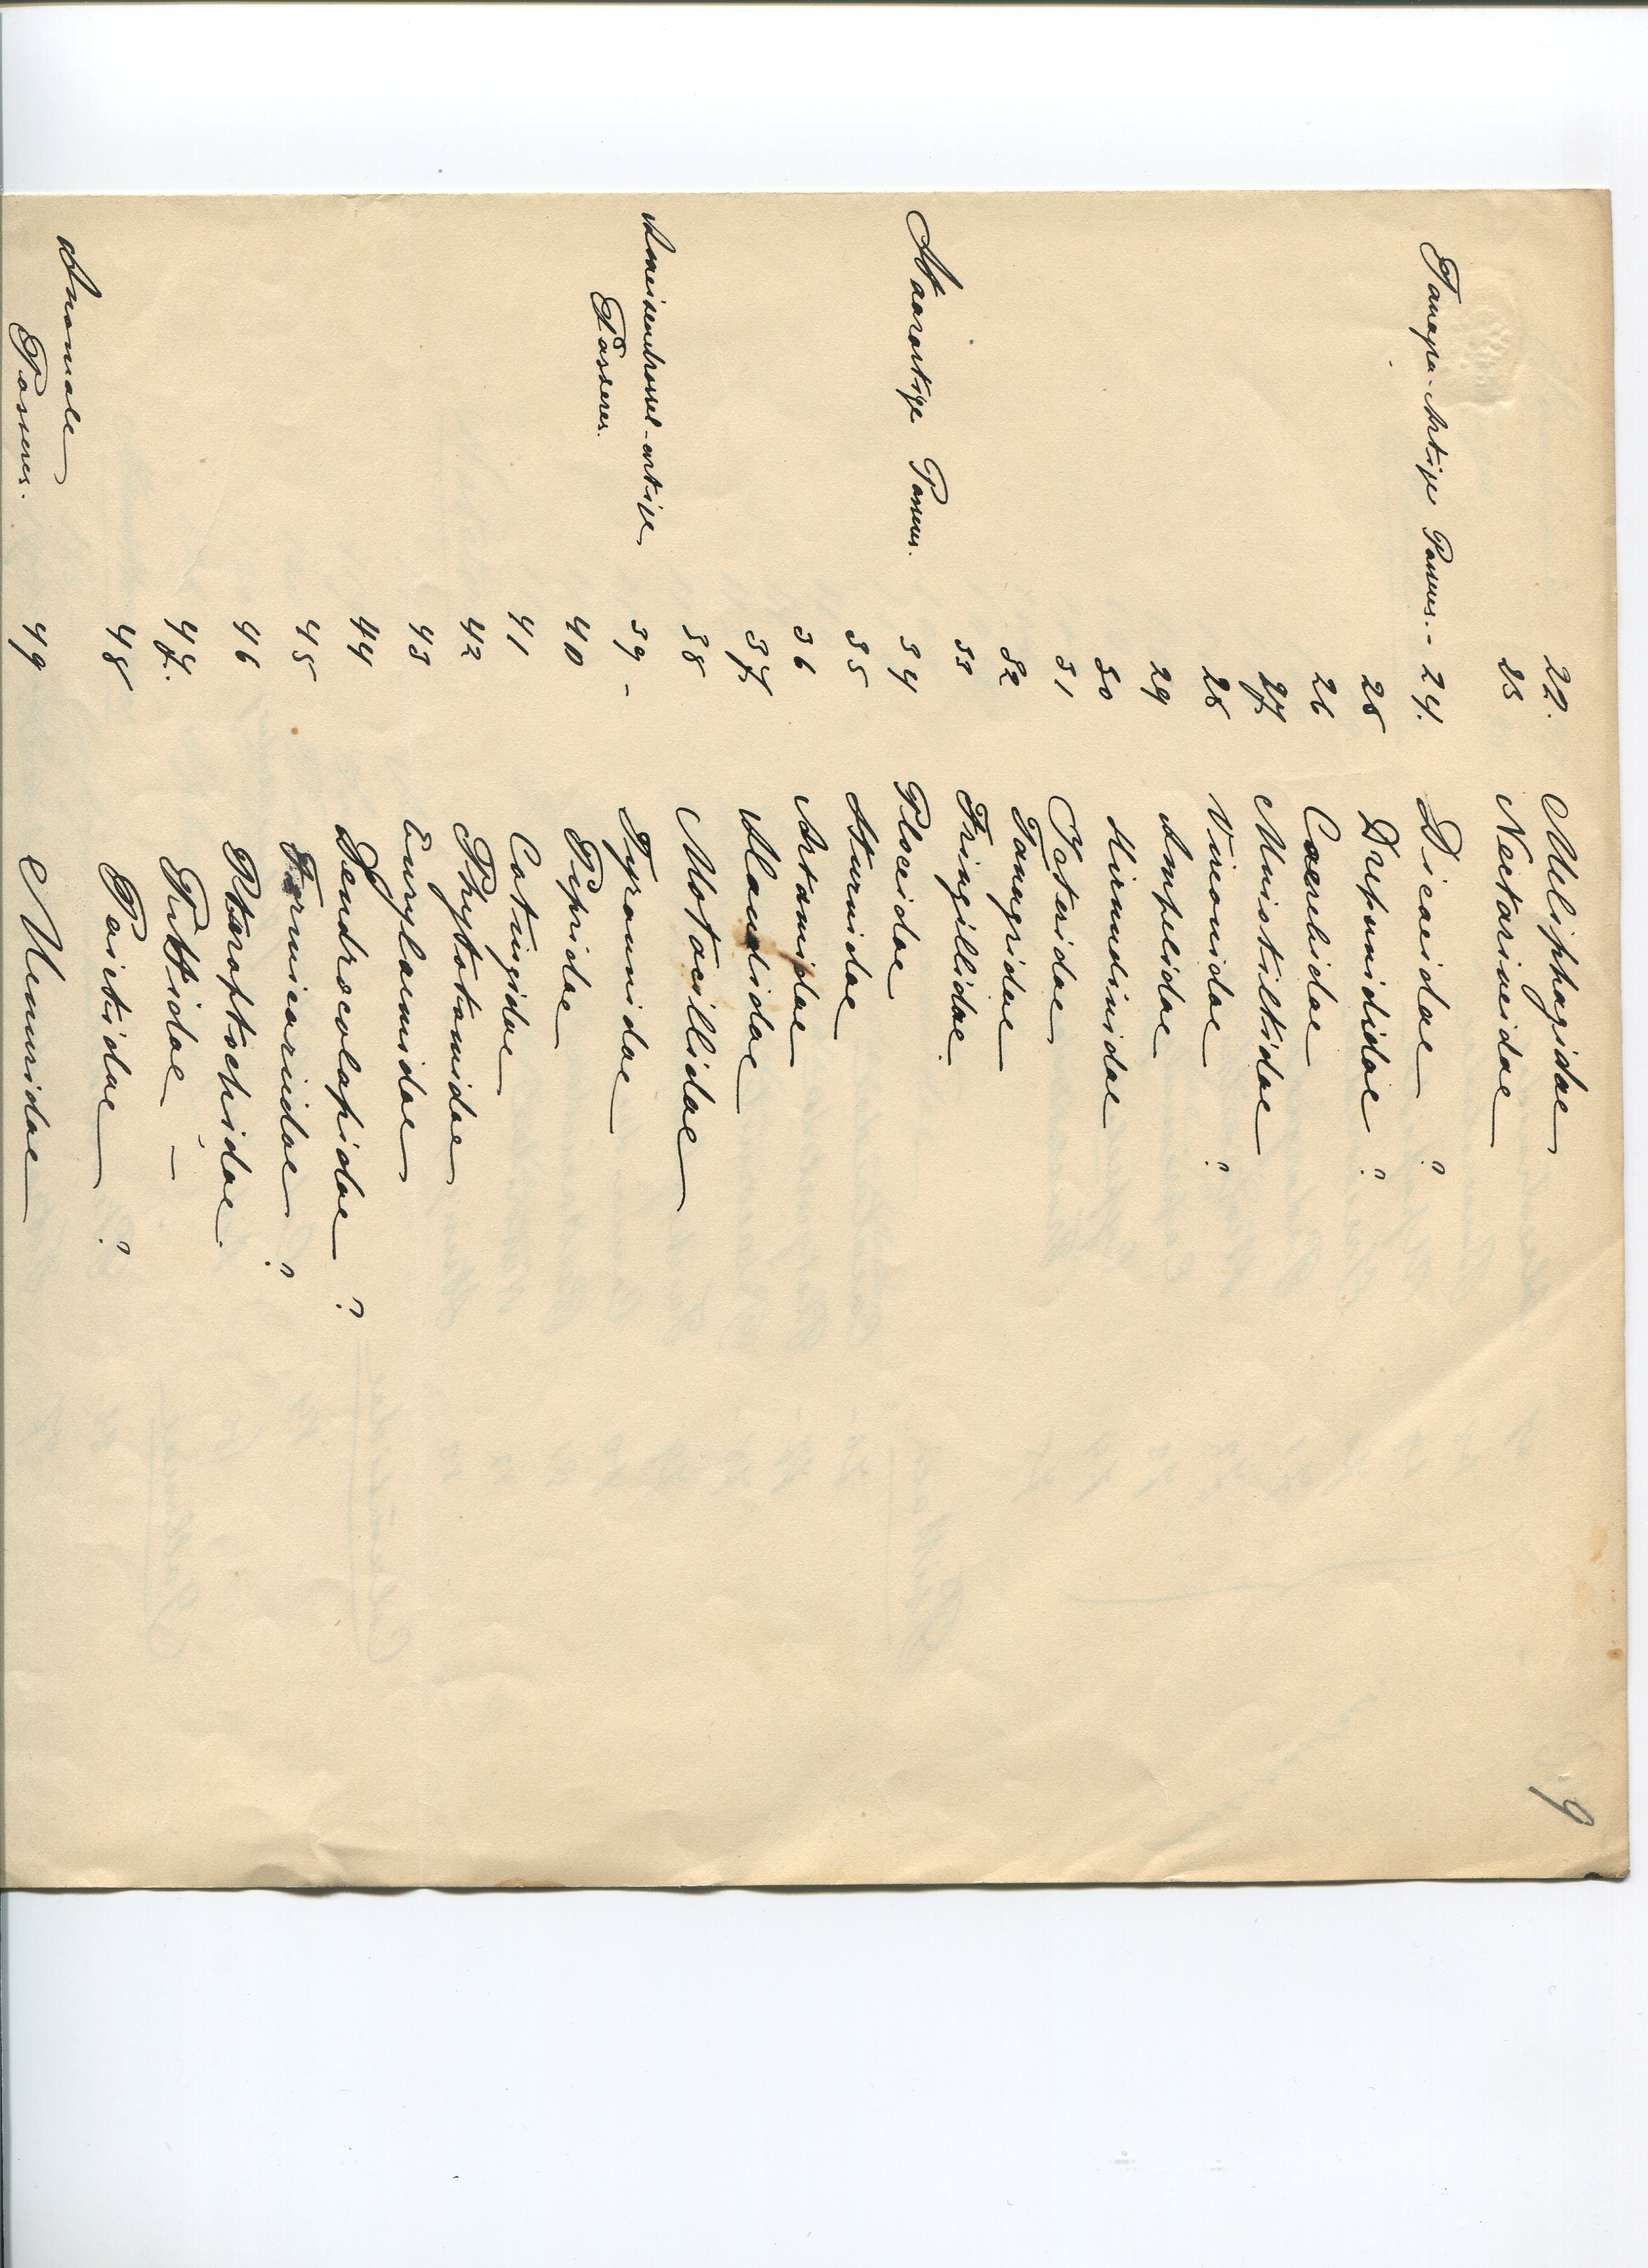 9
22. Meliphagidae
23 Nectarineidae
Tanagra-Artige Passeres.- 24. Dicaeidae ?
25 Drepanididae ?
26 Caerebidae
27 Mniotiltidae
28 Vireonidae ?
29 Ampelidae
30 Hirundinidae
31 Icteridae
32 Tanagridae
33 Fringillidae.
Staarartige Passeres. 34 Ploceidae
35 Sturnidae
36 Artamidae
37 Alaudidae
38 Motacillidae
Ameisendrossel-artige 39 - Tyranidae
Passeres. 40 Pipridae
41 Cotingidae
42 Phytotomidae
43 Eurylaemidae
44 Dendrocolapidae ?
45 Formicariidae ?
46 Pteroptochidae.
47. Pittidae -
48 Paictidae ?
Anomale 49 Menuridae
Passeres.